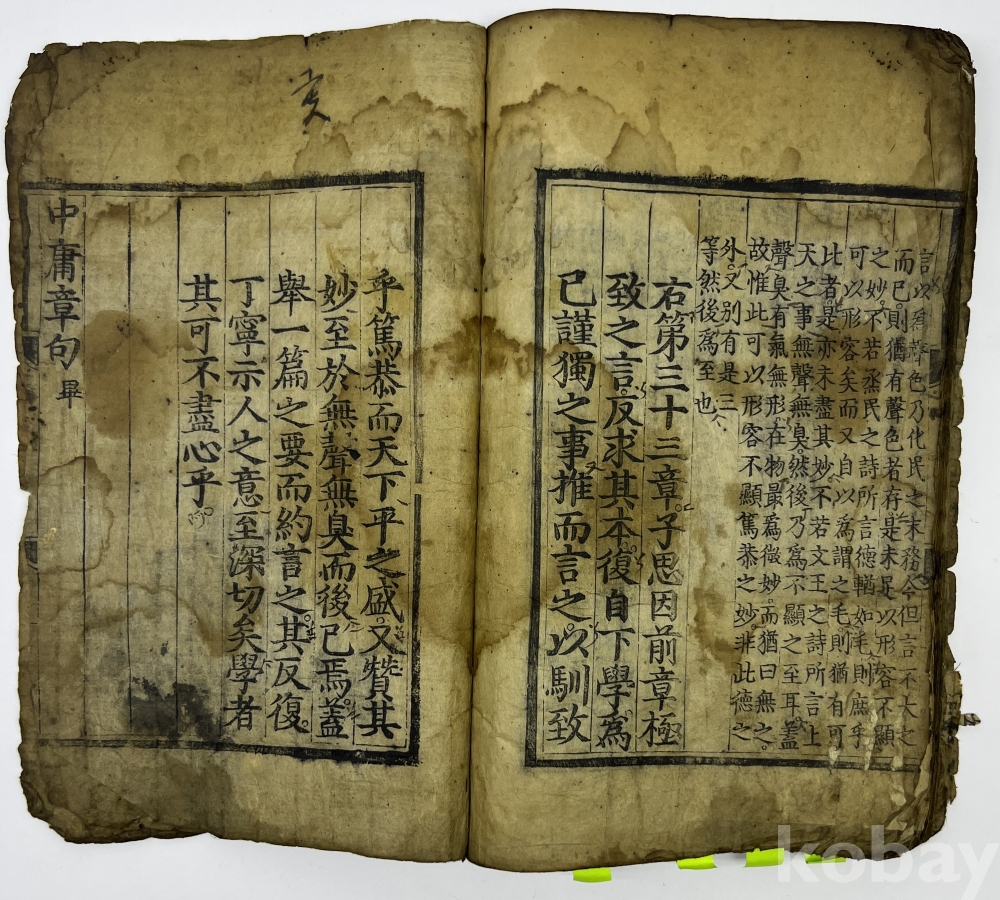 言以爲聲色乃化民之末務今但言不大之
而已則猶有聲色者存是未足以形容不顯
之妙不若烝民之詩所言德輶如毛則庶乎
可以形容矣而又自以爲謂之毛則猶有可
比者是亦未盡其妙不若文王之詩所言上
天之事無聲無臭然後乃爲不顯之至耳蓋
聲臭有氣無形在物最爲微妙而猶曰無之
故惟此可以形容不顯篤恭之妙非此德之
外又別有是三
等然後爲至也
右第三十三章子思因前章極
致之言反求其本復自下學爲
己謹獨之事推而言之以馴致
亥
乎篤恭而天下平之盛又賛其
妙至於無聲無臭而後已焉蓋
舉一篇之要而約言之其反復
丁寧示人之意至深切矣學者
其可不盡心乎
中庸章句 畢
kobay